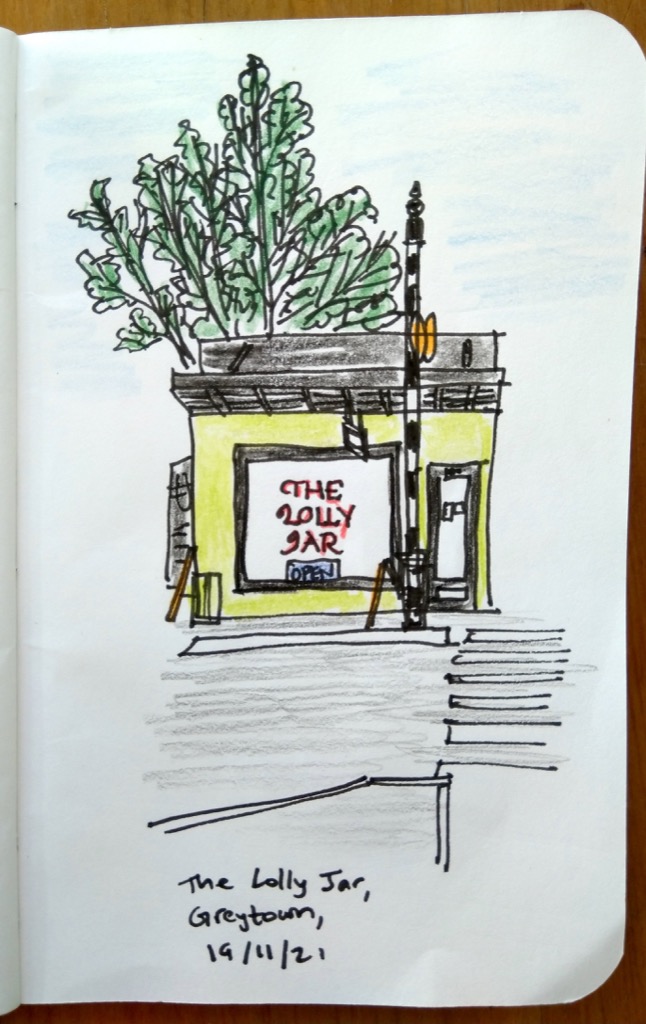 THE
LOLLY
JAR
OPEN
The Lolly Jar,
Greytown,
19/11/21